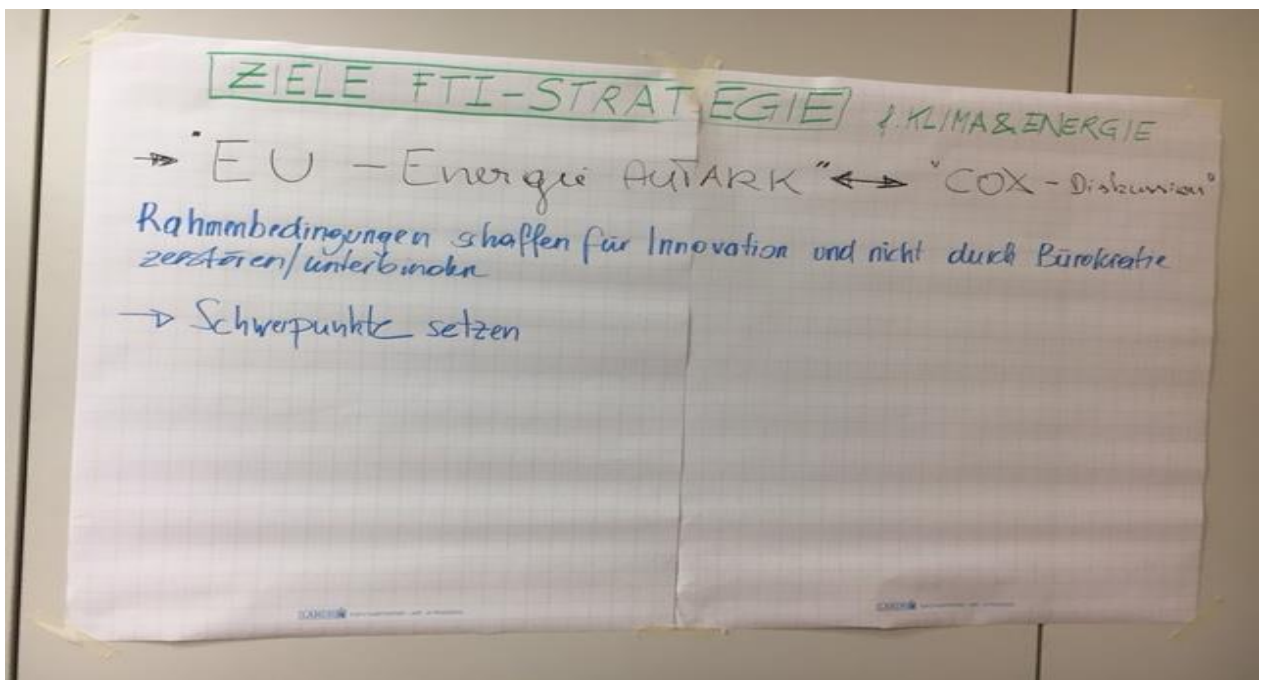 ZIELE FTI-STRATEGIE f. KLIMA&ENERGIE
→ "EU - Energie AUTARK" ↔ "COX - Diskussion"
Rahmenbedingungen schaffen für Innovation und nicht durch Bürokratie
zerstören/unterbinden
→ Schwerpunkte setzen